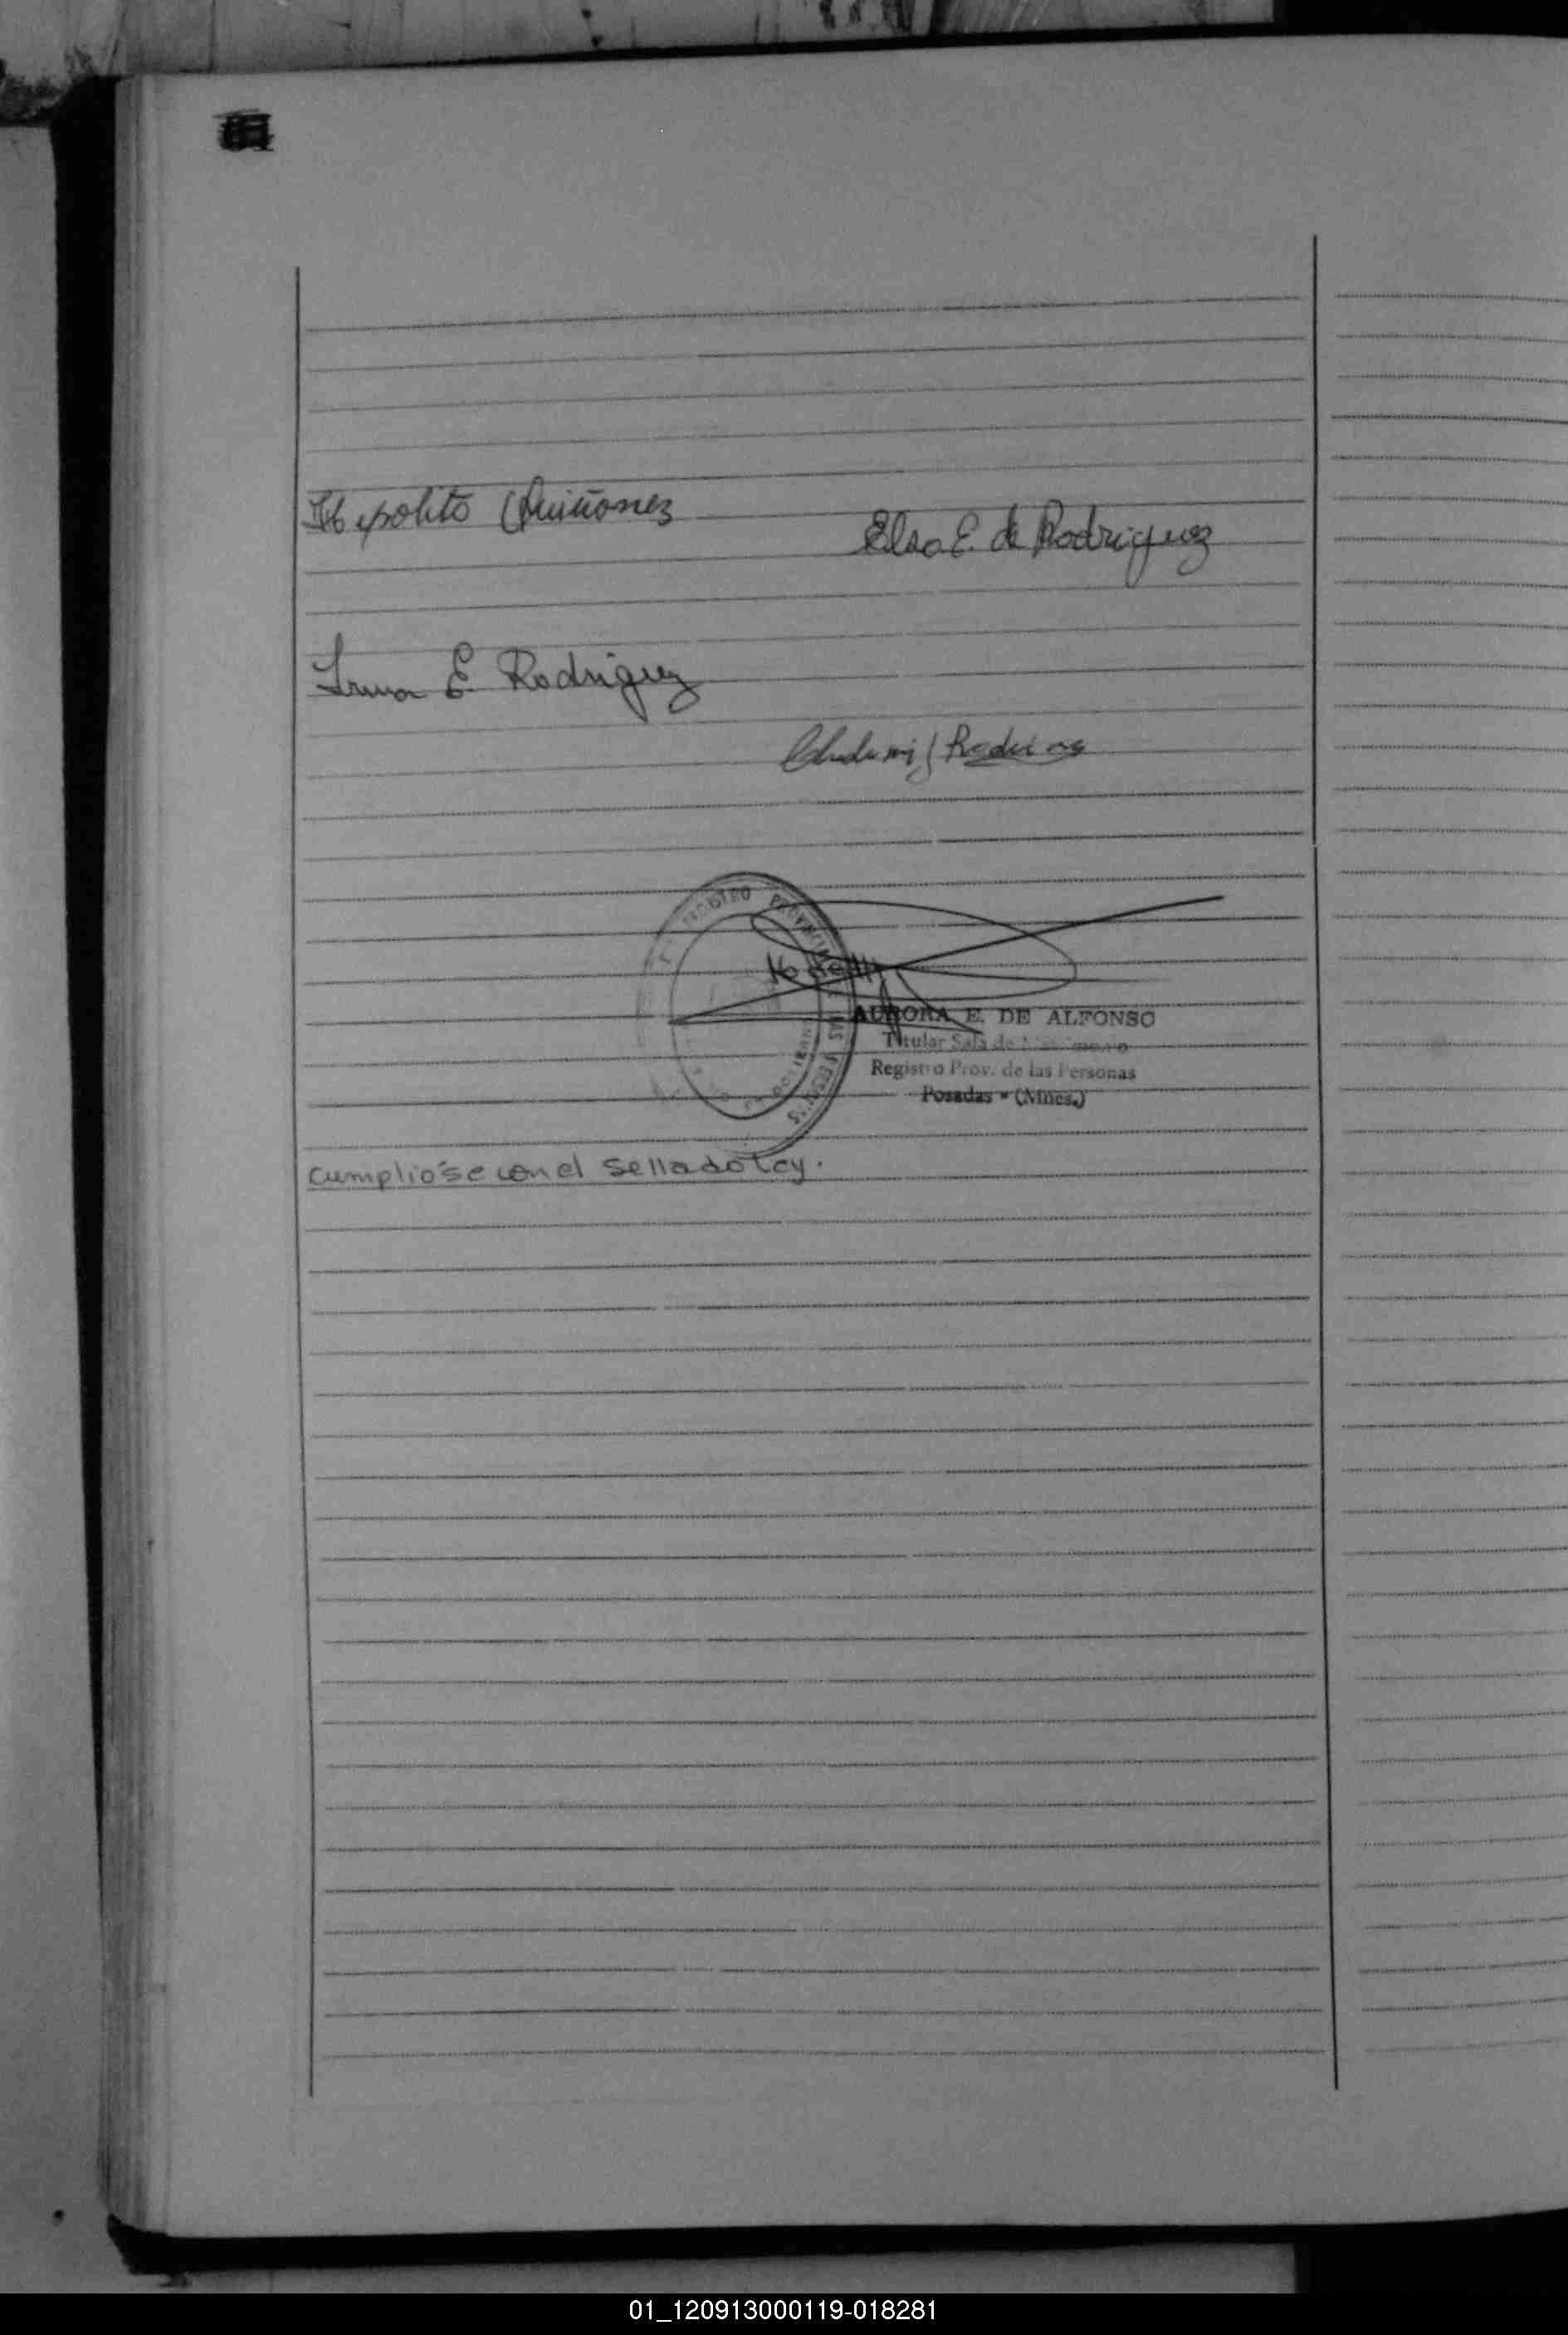 Hipolito Quiñonez
Elsa E. de Rodriguez
Irma E. Rodriguez
REGISTRO PROVINCIAL DE LAS PERSONAS
AURORA E. DE ALFONSO
Titular Sala de
Registro Prov. de las Personas
Posadas - (Mnes.)
Cumplióse con el Sellado Ley.
01_120913000119-018281